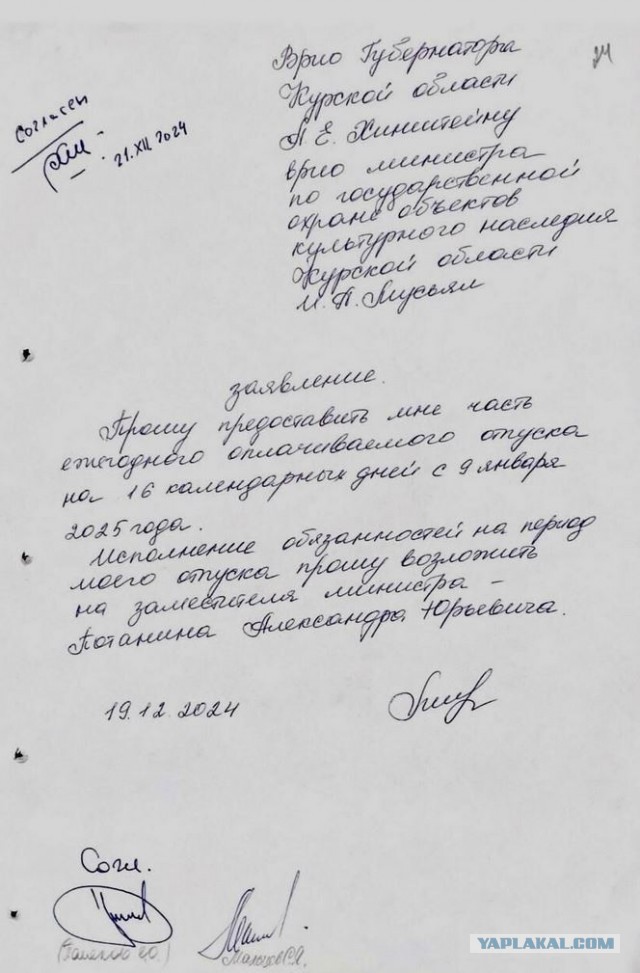 Врио Губернатора
Курской области
А.Е. Хинштейну
врио министра
по государственной
охране объектов
культурного наследия
Курской области
М.А. Мусьял
согласен
21.XII.2024
заявление.
Прошу предоставить мне часть
ежегодного оплачиваемого отпуска
на 16 календарных дней с 9 января
2025 года.
Исполнение обязанностей на период
моего отпуска прошу возложить
на заместителя министра –
Потанина Александра Юрьевича.
19.12.2024
Согл.
YAPLAKAL.COM